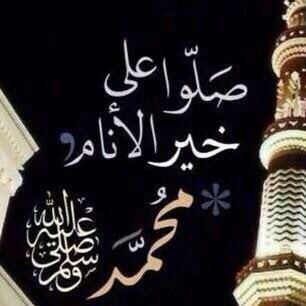 صَلّوا على
خير الأنام،
* محمَّد
صلى الله عليه وسلم